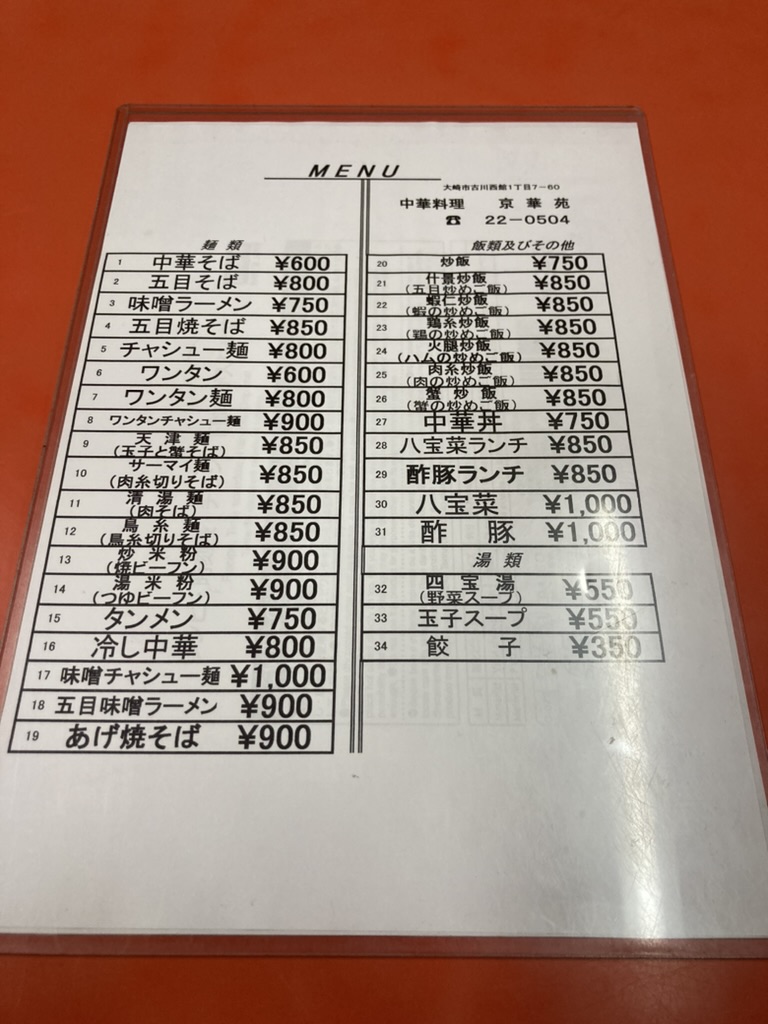 MENU
大崎市古川西館1丁目7-60
中華料理 京華苑
☎ 22-0504
麺類
1 中華そば ¥600
2 五目そば ¥800
3 味噌ラーメン ¥750
4 五目焼そば ¥850
5 チャシュー麺 ¥800
6 ワンタン ¥600
7 ワンタン麺 ¥800
8 ワンタンチャシュー麺 ¥900
9 天津麺 ¥850
(玉子と蟹そば)
10 サーマイ麺 ¥850
(肉糸切りそば)
11 清湯麺 ¥850
(肉そば)
12 鳥糸麺 ¥850
(鳥糸切りそば)
13 炒米粉 ¥900
(焼ビーフン)
14 湯米粉 ¥900
(つゆビーフン)
15 タンメン ¥750
16 冷し中華 ¥800
17 味噌チャシュー麺 ¥1,000
18 五目味噌ラーメン ¥900
19 あげ焼そば ¥900
飯類及びその他
20 炒飯 ¥750
21 什景炒飯 ¥850
(五目炒めご飯)
22 蝦仁炒飯 ¥850
(蝦の炒めご飯)
23 鶏糸炒飯 ¥850
(鶏の炒めご飯)
24 火腿炒飯 ¥850
(ハムの炒めご飯)
25 肉糸炒飯 ¥850
(肉の炒めご飯)
26 蟹炒飯 ¥850
(蟹の炒めご飯)
27 中華丼 ¥750
28 八宝菜ランチ ¥850
29 酢豚ランチ ¥850
30 八宝菜 ¥1,000
31 酢豚 ¥1,000
湯類
32 四宝湯 ¥550
(野菜スープ)
33 玉子スープ ¥550
34 餃子 ¥350